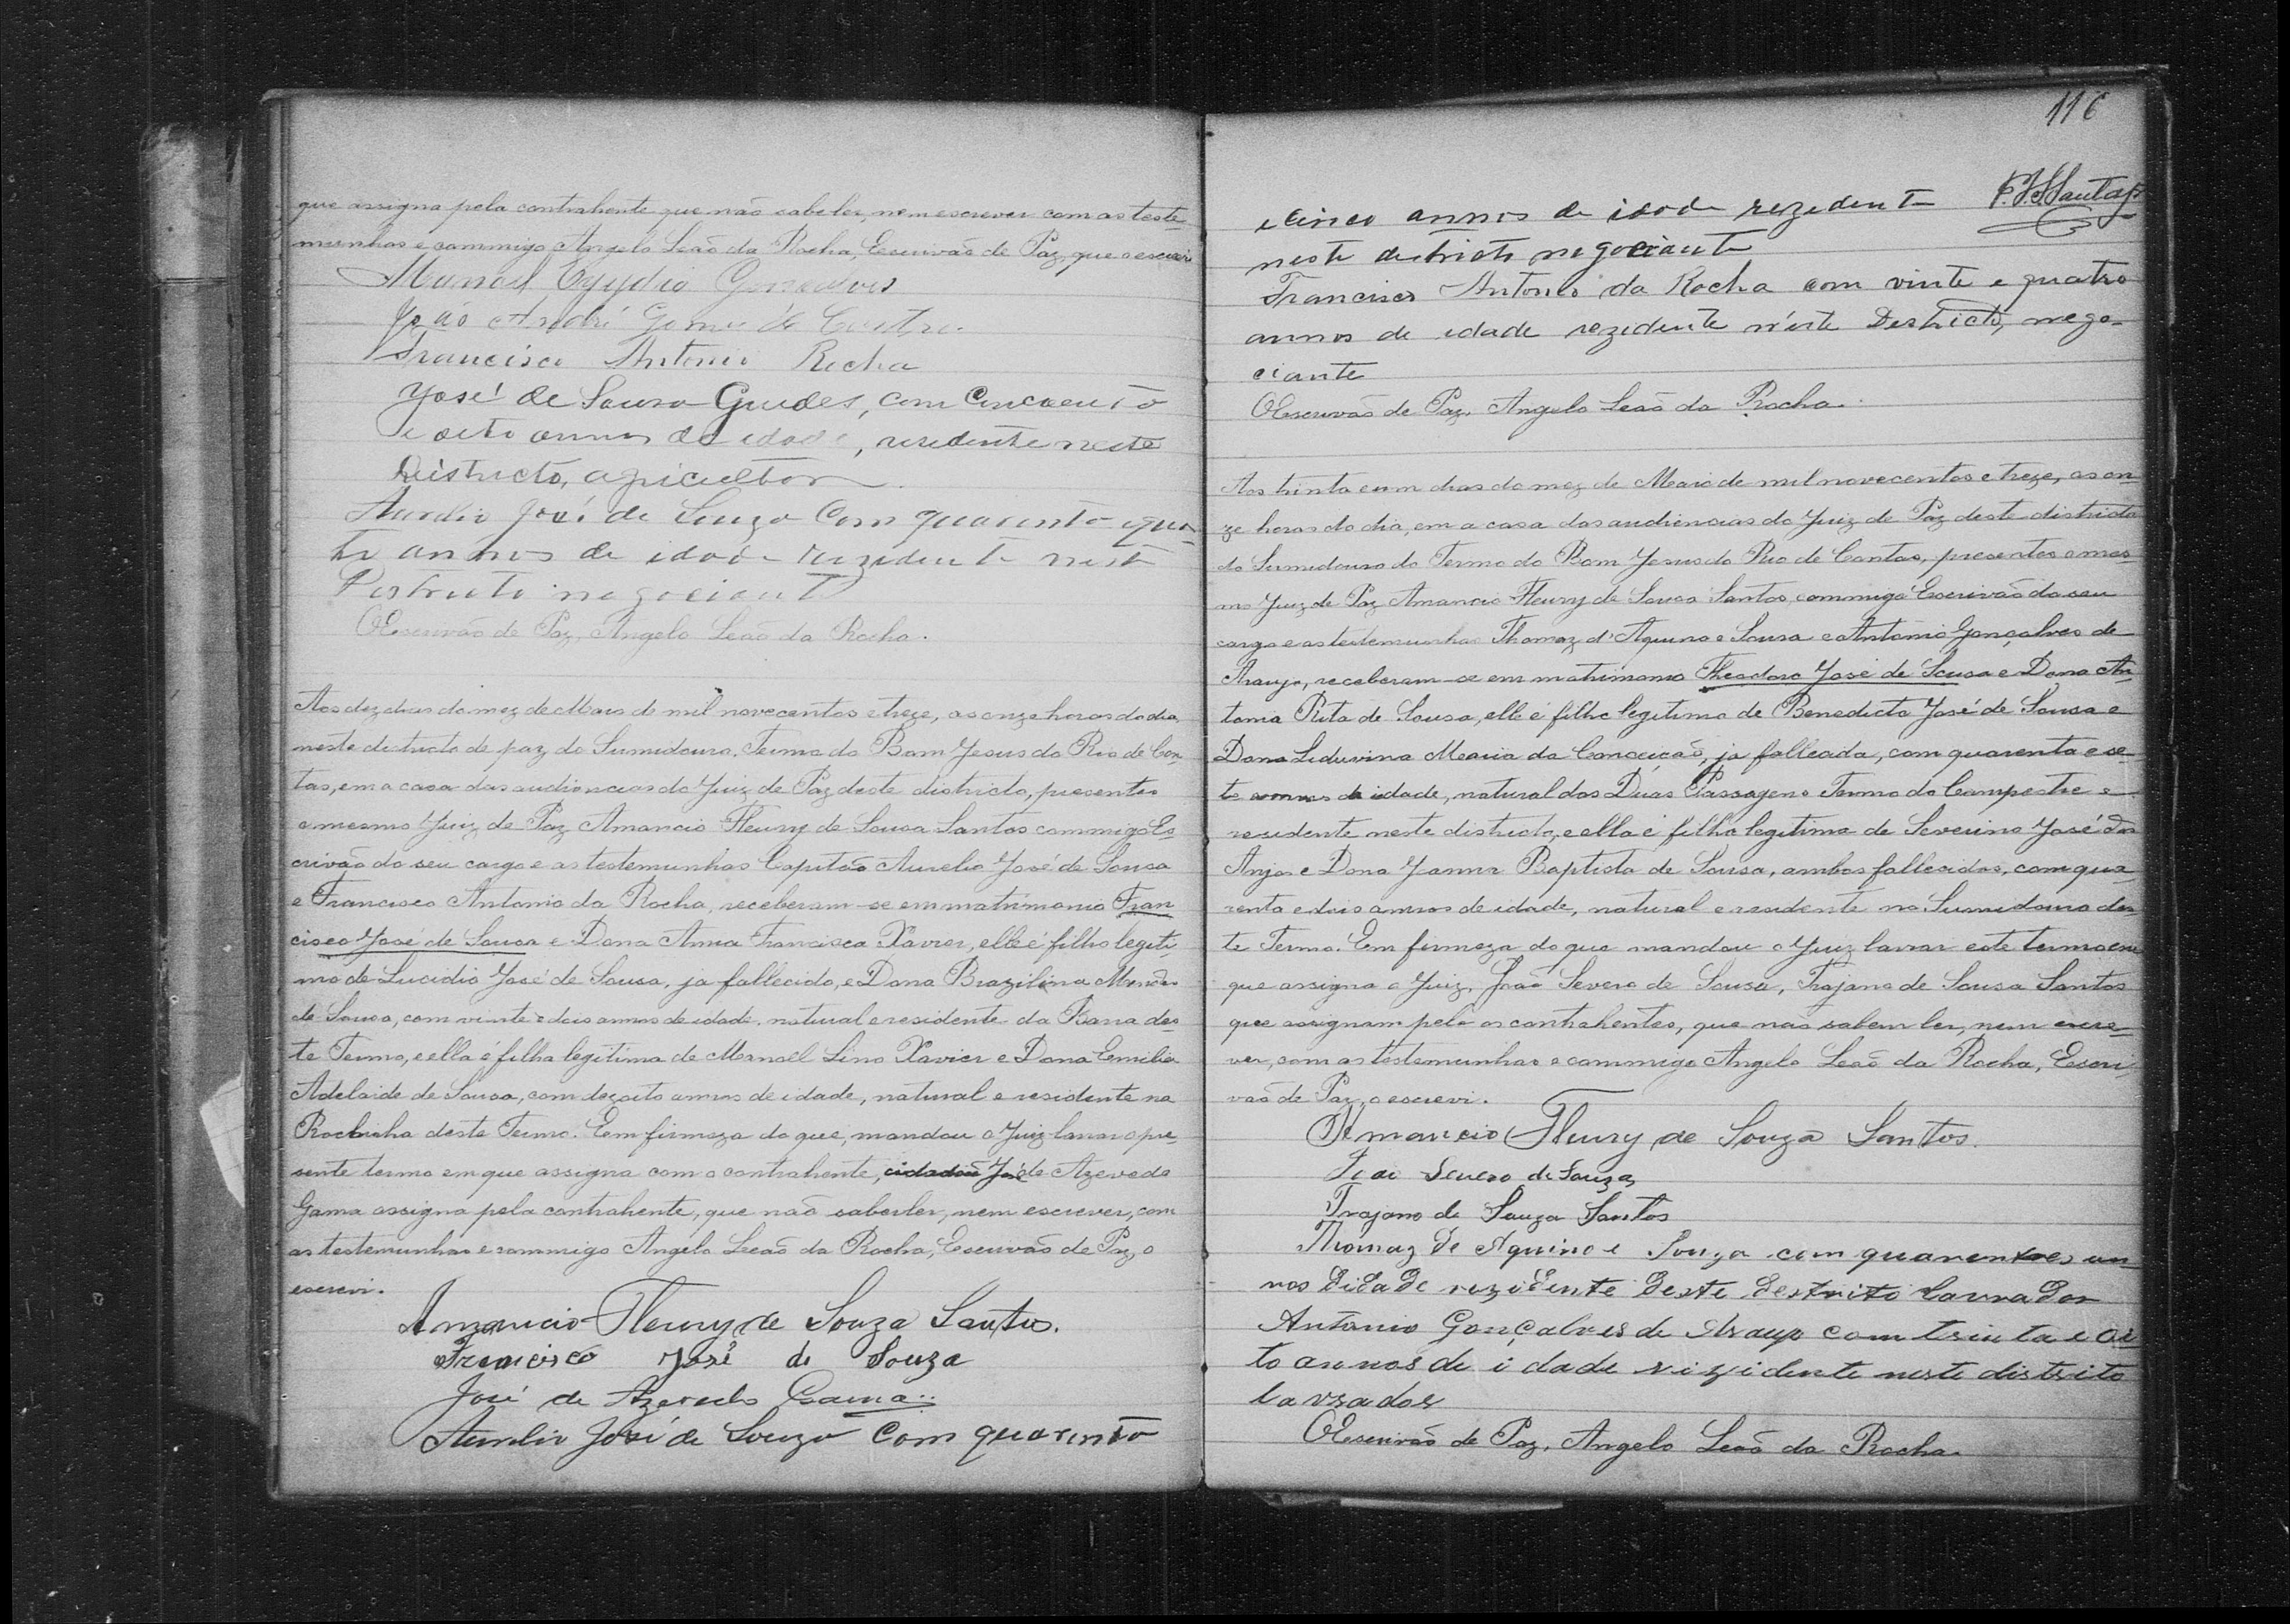 que assigna pela contrahente que não sabe ler, nem escrever com as teste-
munhas e commigo Angelo Leão da Rocha, Escrivão de Paz, que o escrevi
Manoel Egydio Gonsalves
João André Gomes de Castro.
Francisco Antonio Rocha
José de Sousa Guedes, com cincoenta
e oito annos de idade, residente neste
Districto, agricultor.
Aurelio José de Souza com quarenta e qua-
tro annos de idade rezidente neste
Destricto negociante
O Escrivão de Paz, Angelo Leão da Rocha.
Aos dez dias do mez de Maio de mil novecentos e treze, as onze horas do dia,
neste districto de paz do Sumidouro, Termo do Bom Jesus do Rio de Con-
tas, em a casa das audiencias do Juiz de Paz deste districto, presentes
o mesmo Juiz de Paz Amancio Fleury de Sousa Santos commigo Es-
crivão do seu cargo e as testemunhas Capitão Aurelio José de Sousa
e Francisco Antonio da Rocha, receberam-se em matrimonio Fran
cisco José de Sousa e Dona Anna Francisca Xavier, elle é filho legiti-
mo de Lucidio José de Sousa, ja fallecido, e Dona Brazilina Mendes
de Sousa, com vinte e dois annos de idade, natural e residente da Barra des
te Termo, e ella é filha legitima de Manoel Lino Xavier e Dona Emilia
Adelaide de Sousa, com dezoito annos de idade, natural e residente na
Rochinha deste Termo. Em firmeza do que, mandou o Juiz lavrar o pre
sente termo em que assigna com o contrahente, cidadão José de Azevedo
Gama assigna pela contrahente, que não saber ler, nem escrever, com
as testemunhas e commigo Angelo Leão da Rocha, Escrivão de Paz, o
escrevi.
Amancio Fleury de Souza Santos.
Francisco José de Souza
José de Azevedo Gama
Aurelio José de Souza com quarenta
116
e cinco annos de idade rezidente
neste destricto negociante
Francisco Antonio da Rocha com vinte e quatro
annos de idade rezidente n'este Destricto, nego-
ciante
O Escrivão de Paz, Angelo Leão da Rocha.
Aos trinta e um dias do mez de Maio de mil novecentos e treze, as on-
ze horas do dia, em a casa das audiencias do Juiz de Paz deste districto
do Sumidouro do Termo do Bom Jesus do Rio de Contas, presentes o mes-
mo Juiz de Paz Amancio Fleury de Sousa Santos, commigo Escrivão do seu
cargo e as testemunhas Thomaz d'Aquino e Sousa e Antonio Gonçalves de
Araujo, receberam-se em matrimonio Theodoro José de Sousa e Dona An-
tonia Rita de Sousa, elle é filho legitimo de Benedicto José de Sousa e
Dona Leduvina Maria da Conceição, ja fallecida, com quarenta e se-
te annos de idade, natural das Duas Passagens Termo do Campestre e
residente neste districto, e ella é filha legitima de Severino José dos
Anjos e Dona Joanna Baptista de Sousa, ambos fallecidos, com qua-
renta e dois annos de idade, natural e residente no Sumidouro des
te Termo. Em firmeza do que mandou o Juiz lavrar este termo em
que assigna o Juiz, João Severo de Sousa, Trajano de Sousa Santos
que assignam pelo os contrahentes, que não sabem ler, nem escre-
ver, com as testemunhas e commigo Angelo Leão da Rocha, Escri-
vão de Paz, o escrevi.
Amancio Fleury de Souza Santos.
João Severo de Souza
Trajano de Souza Santos
Thomaz de Aquino e Souza com quarentres an-
nos didade rezidente deste destrito lavrador
Antonio Gonçalves de Araujo com trinta e oi-
to annos de idade rizidente neste distrito
lavrador
O Escrivão de Paz, Angelo Leão da Rocha.